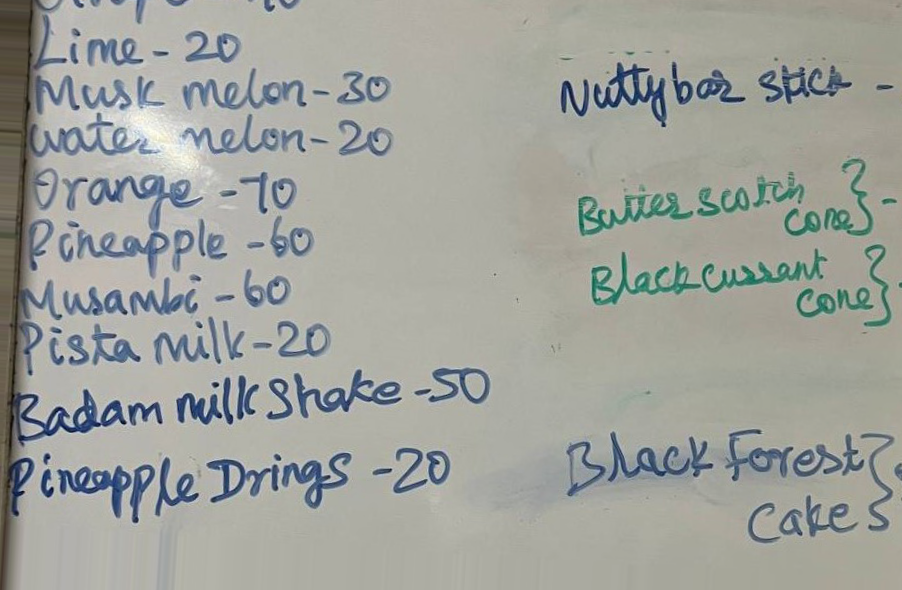 Lime - 20
Musk melon - 30
water melon - 20
Orange - 70
Pineapple - 60
Musambi - 60
Pista milk - 20
Badam milk Shake - 50
Pineapple Drings - 20
Nuttybar stick -
Butterscotch
cone} -
Blackcurrant
cone}
Black Forest
Cake}